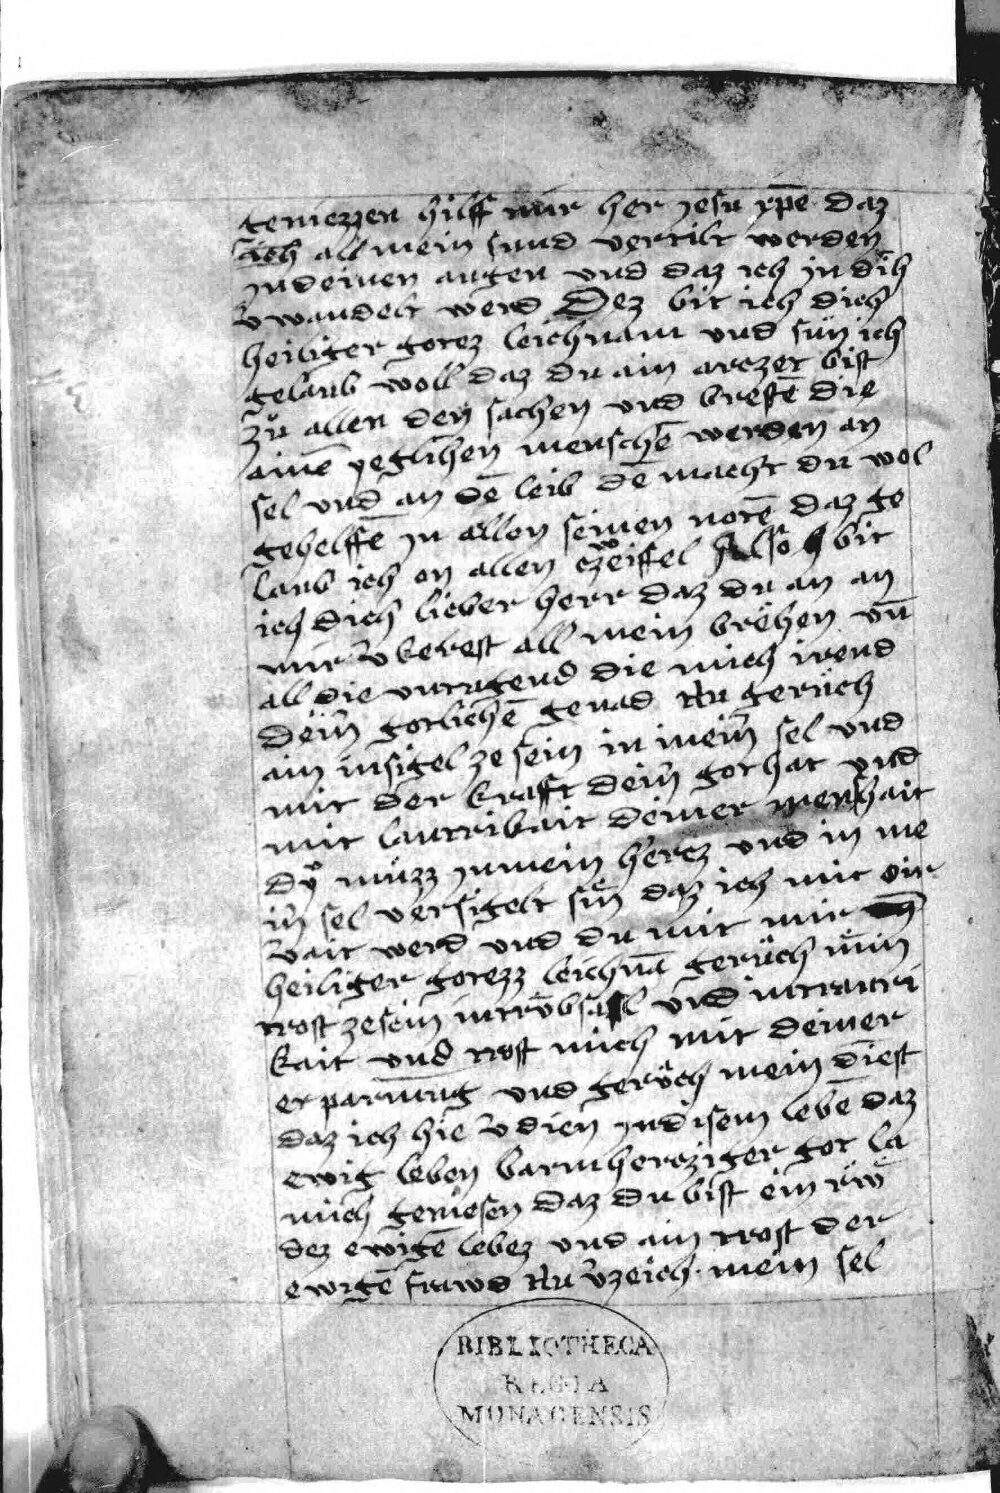 geniezzen hilff mir her jesu xp̄e daz
ich all mein sund vertilt werden
jn deinen augen und daz ich jn dih
v̾wandelt werd Dez bit ich dich
heiliger gotez leichnam und sun ich
gelaub woll daz du ain arczet bist
zu allen den sachen und brestē die
ainē yeglihen menschē werden an
sel und an dē leib dē macht du wol
gehelffē jn allen seinen notē daz ge
laub ich on allen czweiffel Also bit
ich dich lieber herr daz du an an
mir v̾kerest all mein brehen un̄
all die untugend die mich irend
dein̄ gotlichē genad Nu geruch
ain insigel ze sein in mein̄ sel und
mit der krafft dein̄ gothat und
mit lauttrikait deiner menshait
dy muzz jn mein hercz und in me
in̄ sel versigelt sin daz ich mit dir
v̾ait werd und du mit mir
heiliger gotezz leichnā geruch min
trost ze sein in trubsal und in trauri
kait und trost mich mit deiner
erparmung und geruch mein diest
daz ich hie v̾dien jn disem lebē daz
ewig leben barmhercziger got la
mich geniesen daz du bist ein rw
dez ewigē lebez und ain trost der
ewigē frawd Nu v̾zeich mein sel
BIBLIOTHECA
REGIA
MONACENSIS